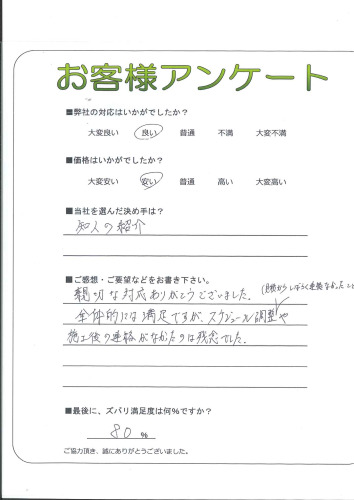 お客様アンケート
■弊社の対応はいかがでしたか?
大変良い 良い 普通 不満 大変不満
■価格はいかがでしたか?
大変安い 安い 普通 高い 大変高い
■当社を選んだ決め手は?
知人の紹介
■ご感想・ご要望などをお書き下さい。
親切な対応ありがとうございました。
全体的には満足ですが、スケジュール調整や
施工後の連絡がなかったのは残念でした。
■最後に、ズバリ満足度は何%ですか?
80 %
ご協力頂き、誠にありがとうございました。